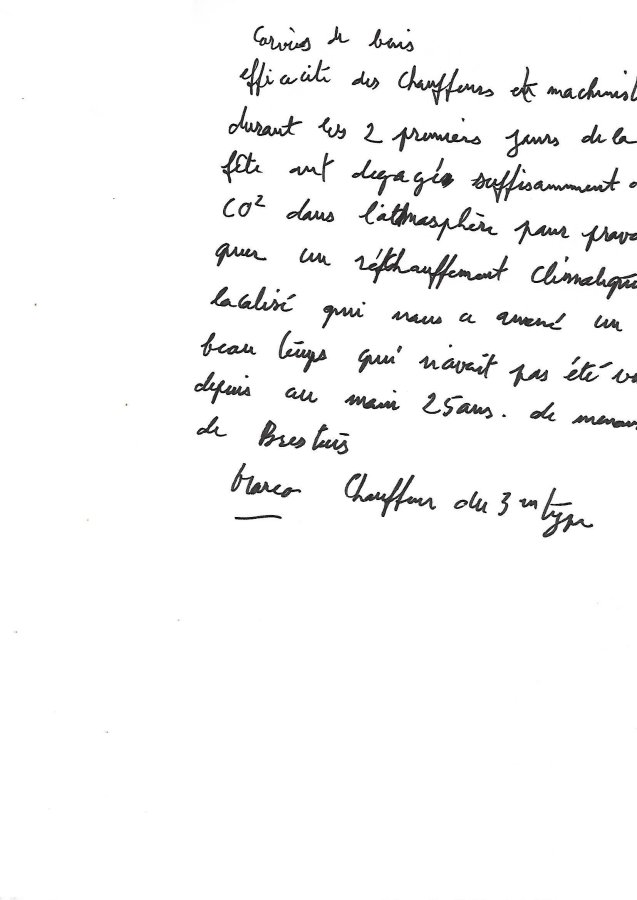 Corvées de bois
efficacité des chauffeurs et machinist
durant les 2 premiers jours de la
fête ont degagé suffisamment d
CO² dans l'atmosphère pour provo
quer un réchauffement climatique
localisé qui nous a amené un
beau temps qui n'avait pas été v
depuis au main 25 ans. de
de Brestois
Marco Chauffeur du 3 m type